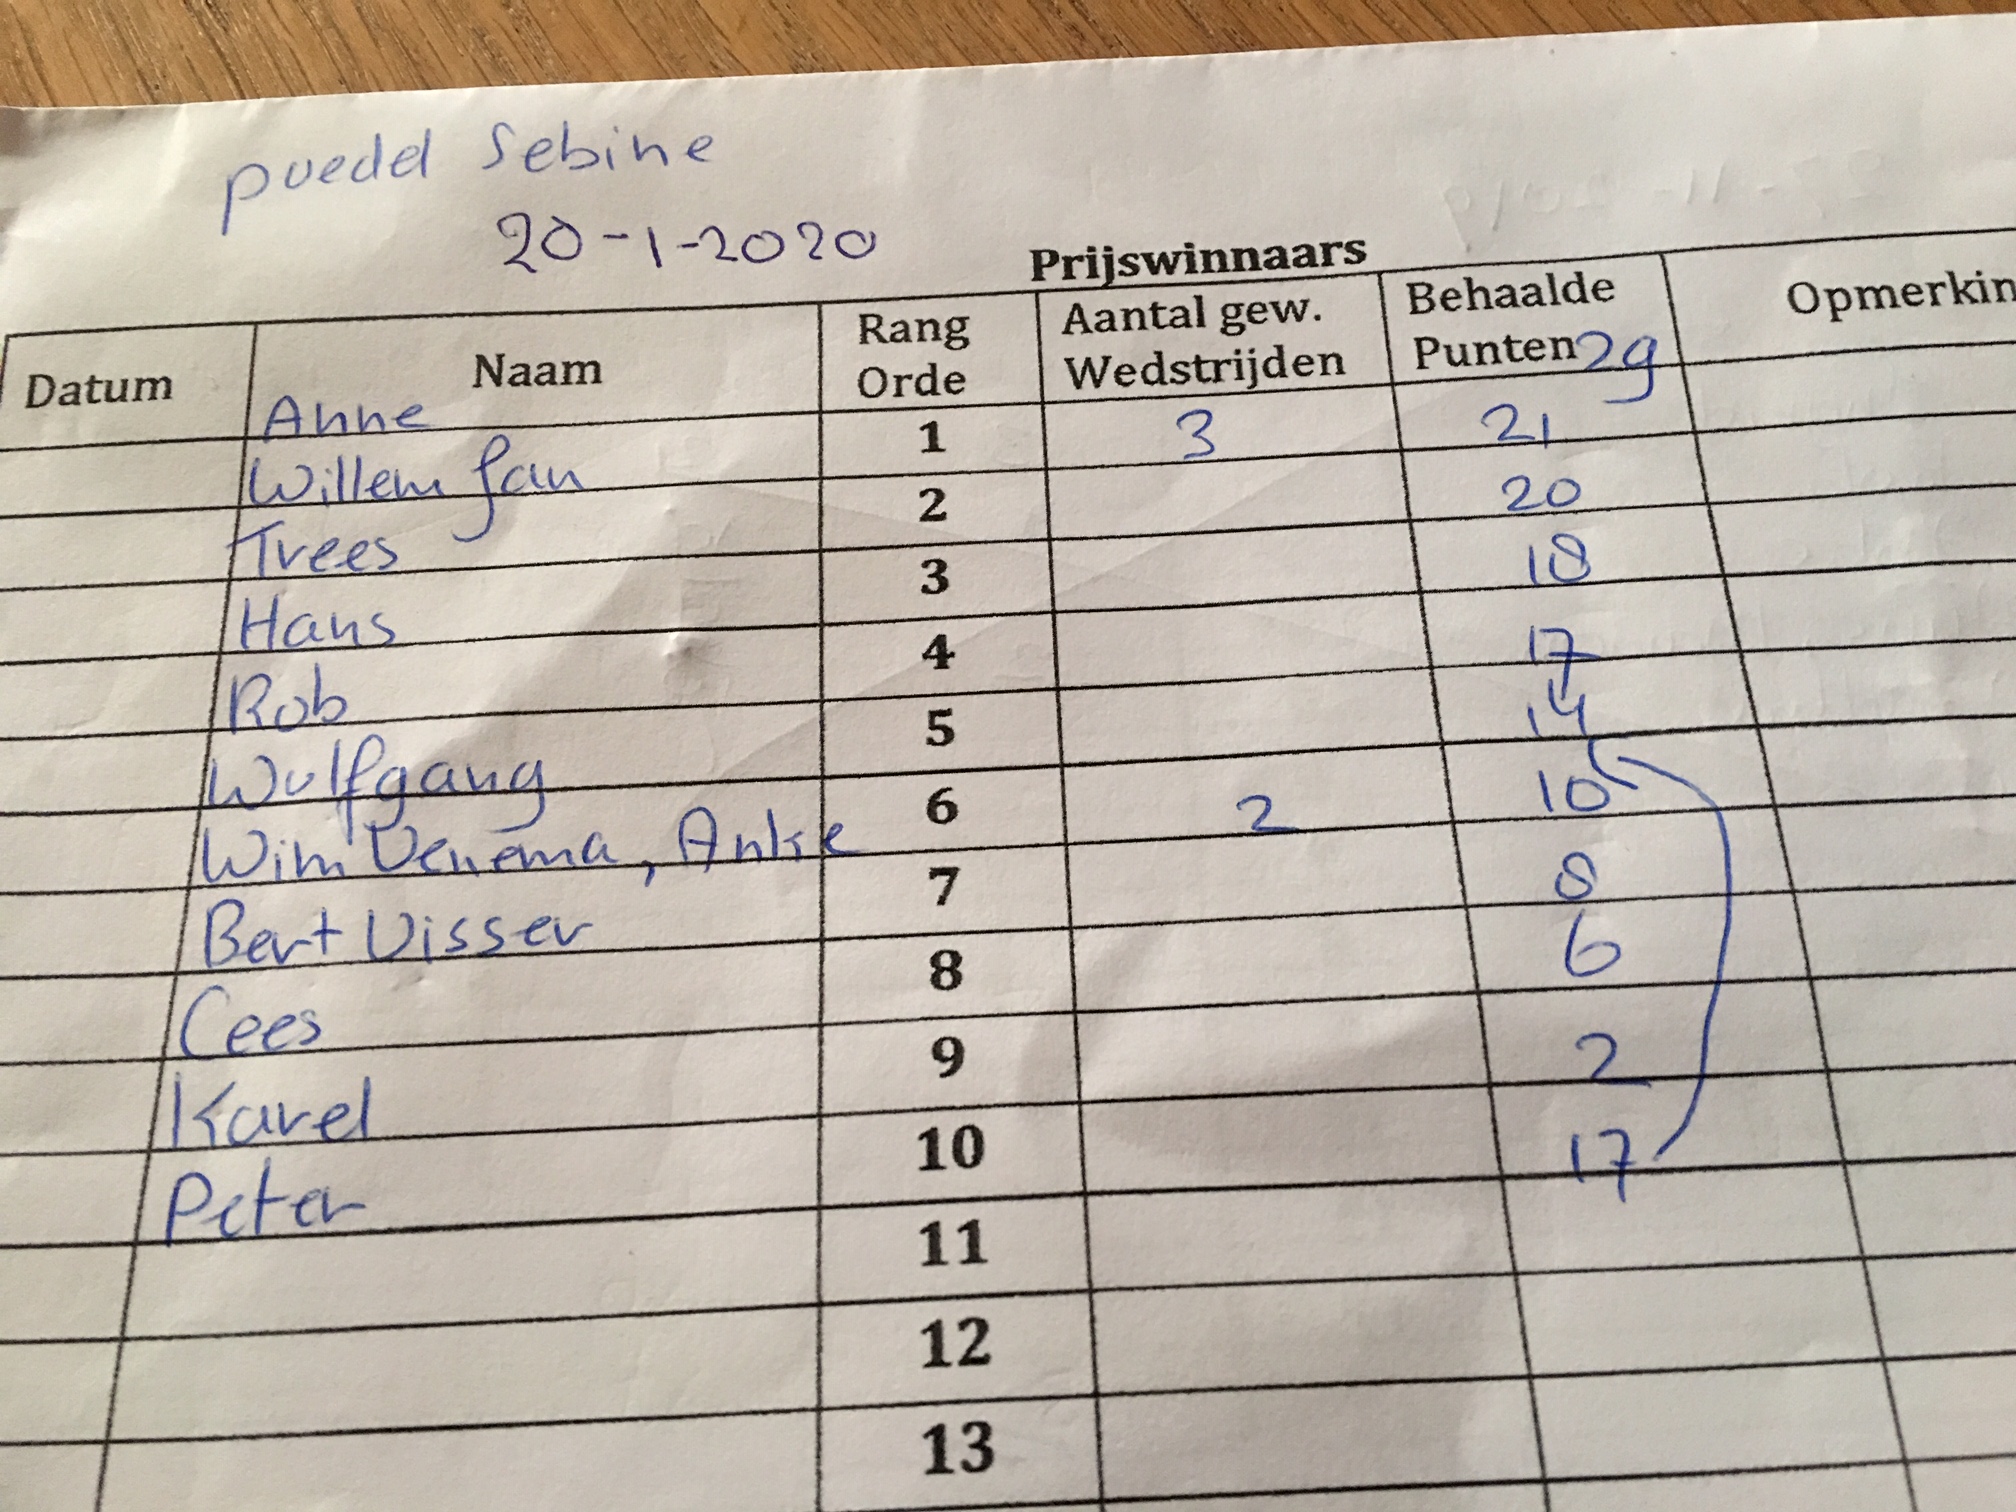 puedel Sebine
20-1-2020
Prijswinnaars
Datum Naam Rang Orde Aantal gew. Wedstrijden Behaalde Punten 29 Opmerkin
Anne 1 3 21
Willem Jan 2 20
Trees 3 18
Hans 4 17
Rob 5 14
Wolfgang 6 2 10
Wim Venema, Anke 7 8
Bert Visser 8 6
Cees 9 2
Karel 10 17
Peter 11
12
13